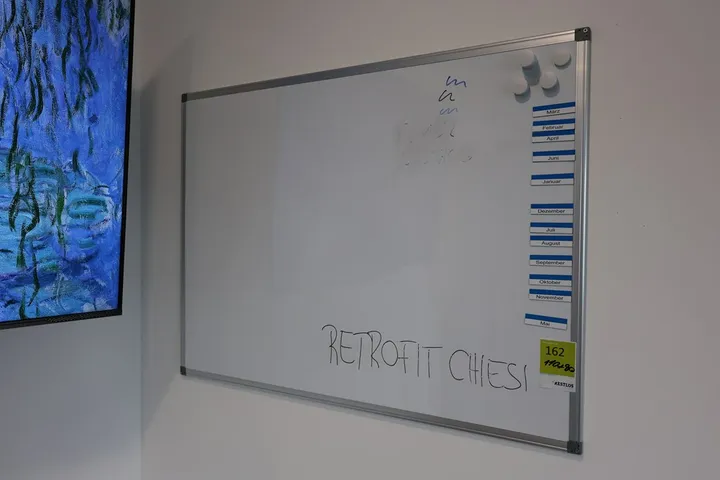 März
Februar
April
Juni
Januar
Dezember
Juli
August
September
Oktober
November
Mai
RETROFIT CHIESI
162